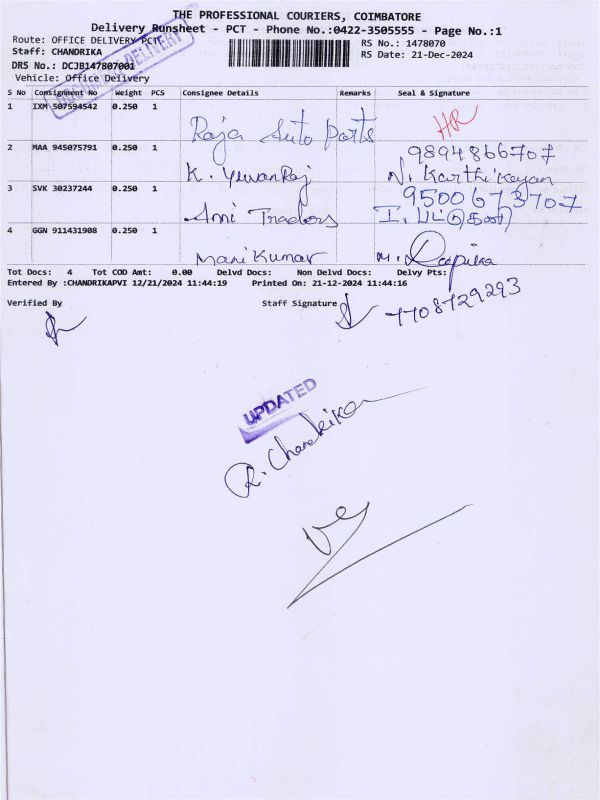 THE PROFESSIONAL COURIERS, COIMBATORE
Delivery Runsheet - PCT - Phone No.:0422-3505555 - Page No.:1
Route: OFFICE DELIVERY PCT
RS No.: 1478070
Staff: CHANDRIKA
RS Date: 21-Dec-2024
DRS No.: DCJB147807001
Vehicle: Office Delivery
OFFICE DELIVERY
S No Consignment No Weight PCS Consignee Details Remarks Seal & Signature
1 IXM 507594542 0.250 1 Raja Auto Parts HR
2 MAA 945075791 0.250 1 K. Yuvan Raj 9894866707 N. Karthikeyan
3 SVK 30237244 0.250 1 Ami Traders 9500673707
4 GGN 911431908 0.250 1 Mani Kumar M. Deepika
Tot Docs: 4 Tot COD Amt: 0.00 Delvd Docs: Non Delvd Docs: Delvy Pts:
Entered By :CHANDRIKAPVI 12/21/2024 11:44:19 Printed On: 21-12-2024 11:44:16
Verified By Staff Signature 7708729293
UPDATED
R. Chandrika